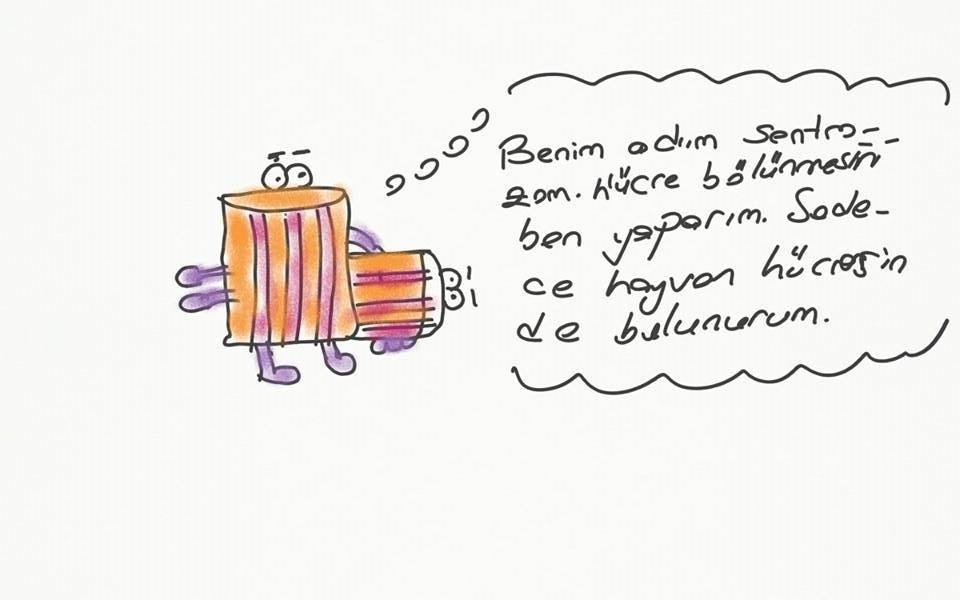 Benim adım sentro-
zom. Hücre bölünmesini
ben yaparım. Sade-
ce hayvan hücresin
de bulunurum.